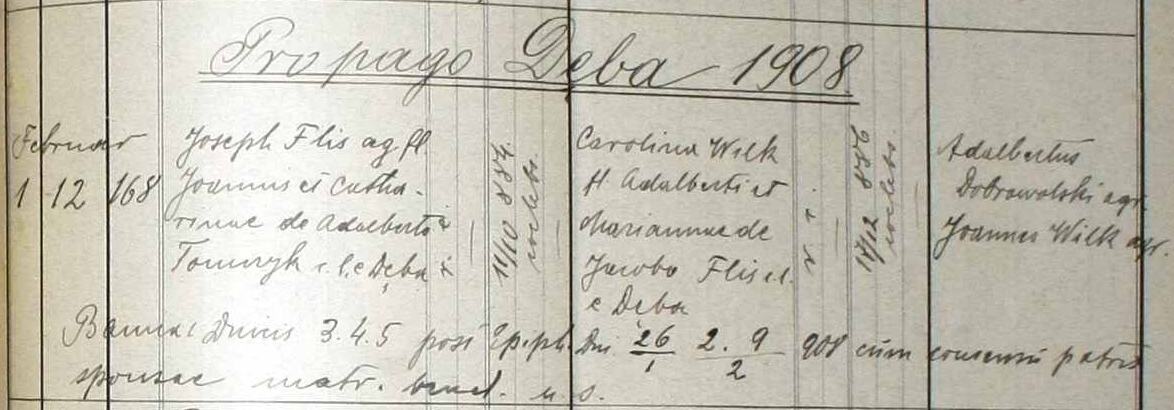 Pro pago Dęba 1908
Februar
1 12 168
Joseph Flis ag fl
Joannis et Catha-
rinae de Adalberto
Tomczyk c. l. e Dęba
11/10 884.
coelebs.
Carolina Wilk
fl Adalberti et
Mariannae de
Jacobo Flis c. l.
e Dęba
17/12 886
coelebs.
Adalbertus
Dobrowolski agr.
Joannes Wilk agr.
Bannis Dnicis 3. 4. 5 post Epiph. Dni 26/1 2. 9/2 908 cum consensu patris
sponsae matr. bened. u. s.